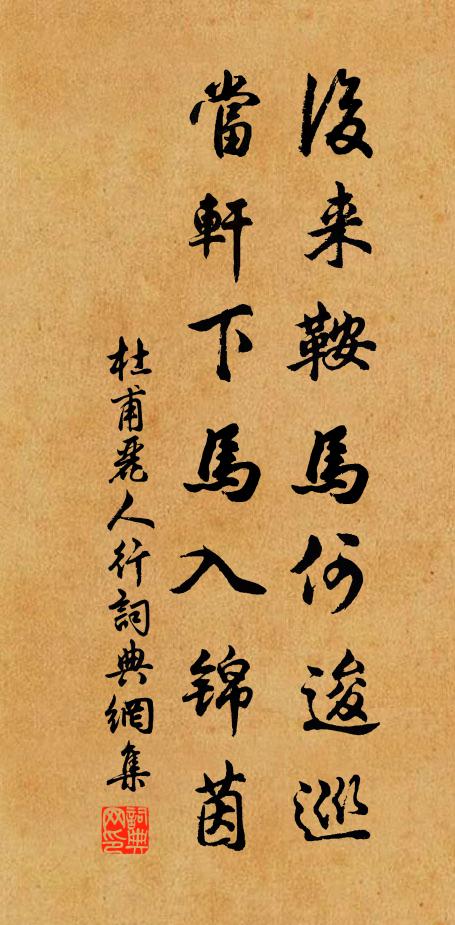 後来鞍馬何逡巡
當軒下馬入錦茵
杜甫麗人行詞典網集
詞典網印